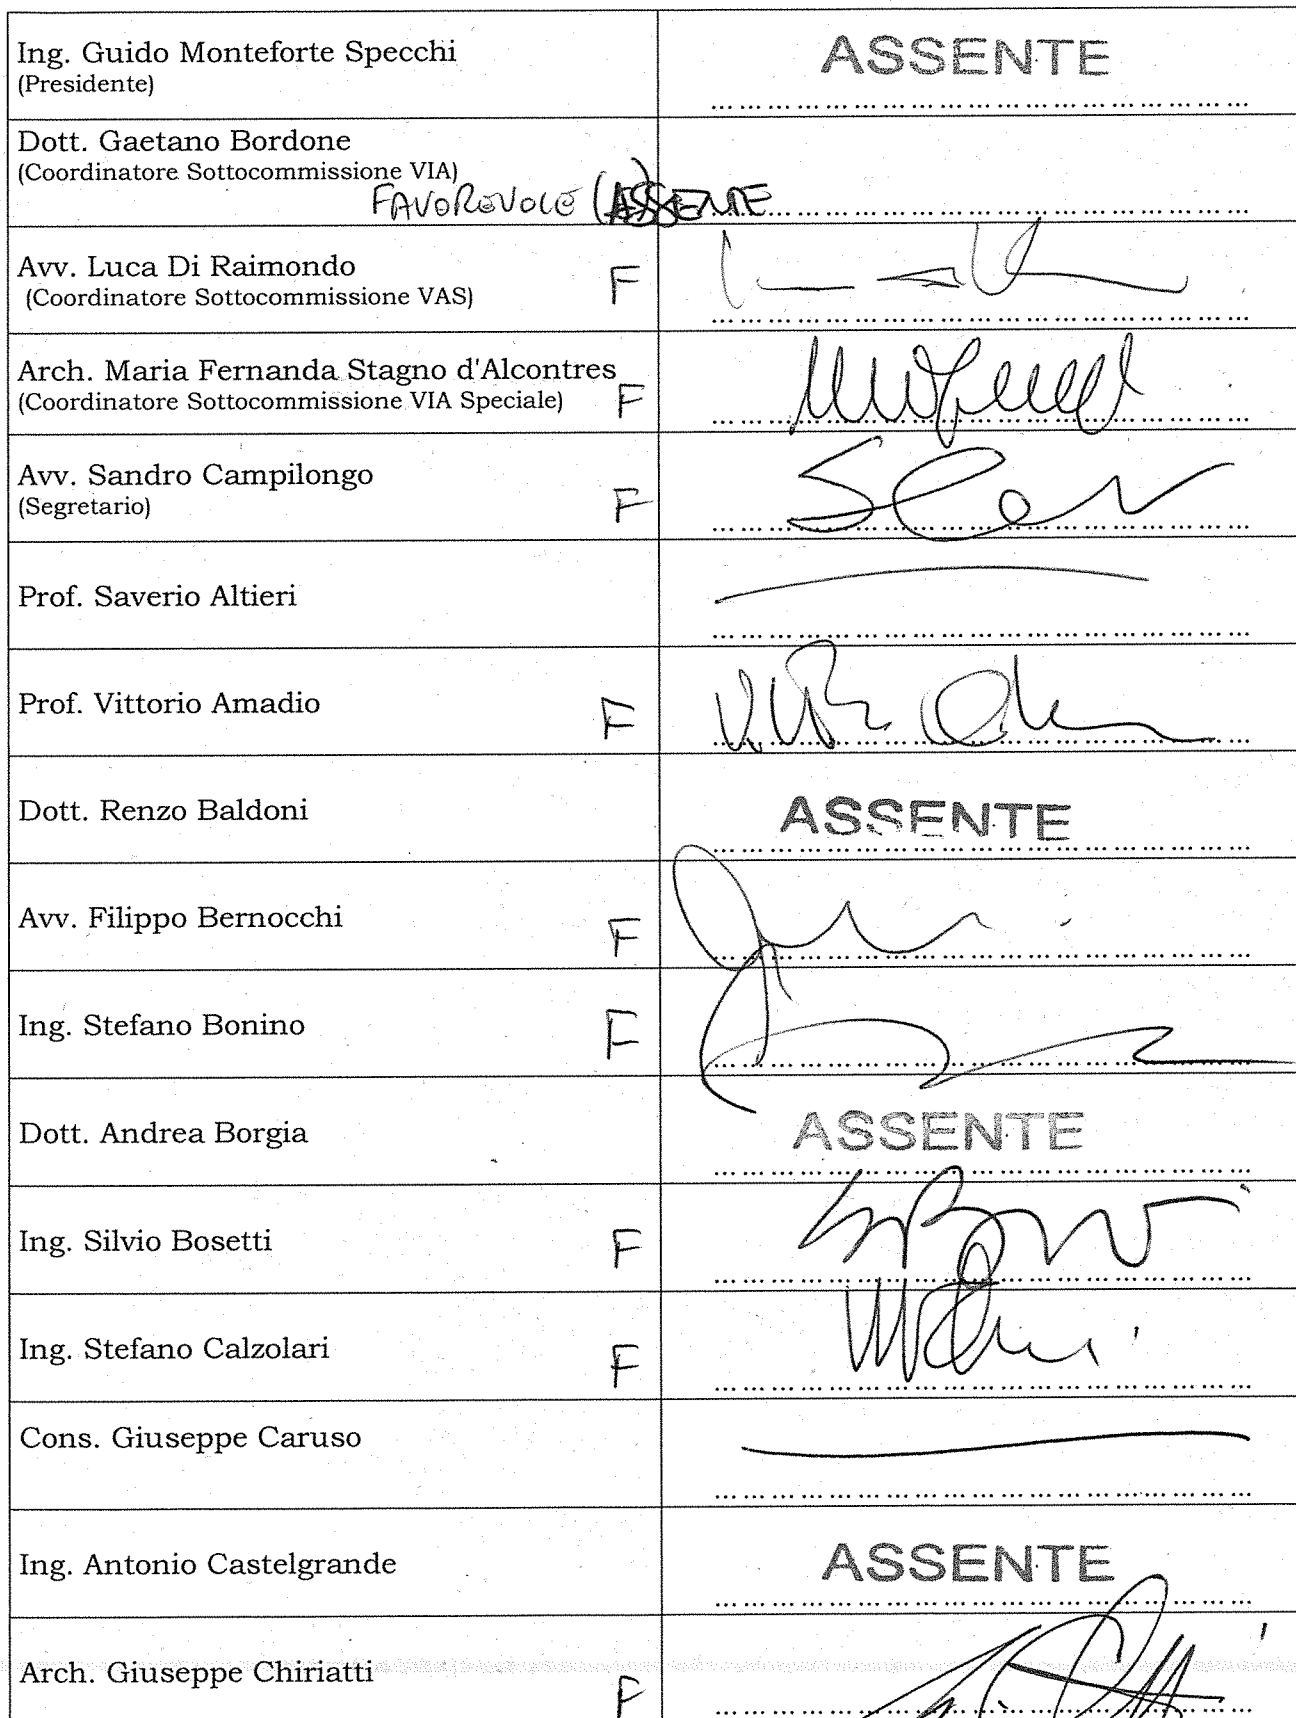 Ing. Guido Monteforte Specchi
(Presidente)
ASSENTE
Dott. Gaetano Bordone
(Coordinatore Sottocommissione VIA)
FAVOREVOLE (ASSENTE
Avv. Luca Di Raimondo
(Coordinatore Sottocommissione VAS)
F
Arch. Maria Fernanda Stagno d'Alcontres
(Coordinatore Sottocommissione VIA Speciale)
F
Avv. Sandro Campilongo
(Segretario)
F
Prof. Saverio Altieri
Prof. Vittorio Amadio
F
Dott. Renzo Baldoni
ASSENTE
Avv. Filippo Bernocchi
F
Ing. Stefano Bonino
F
Dott. Andrea Borgia
ASSENTE
Ing. Silvio Bosetti
F
Ing. Stefano Calzolari
F
Cons. Giuseppe Caruso
Ing. Antonio Castelgrande
ASSENTE
Arch. Giuseppe Chiriatti
F